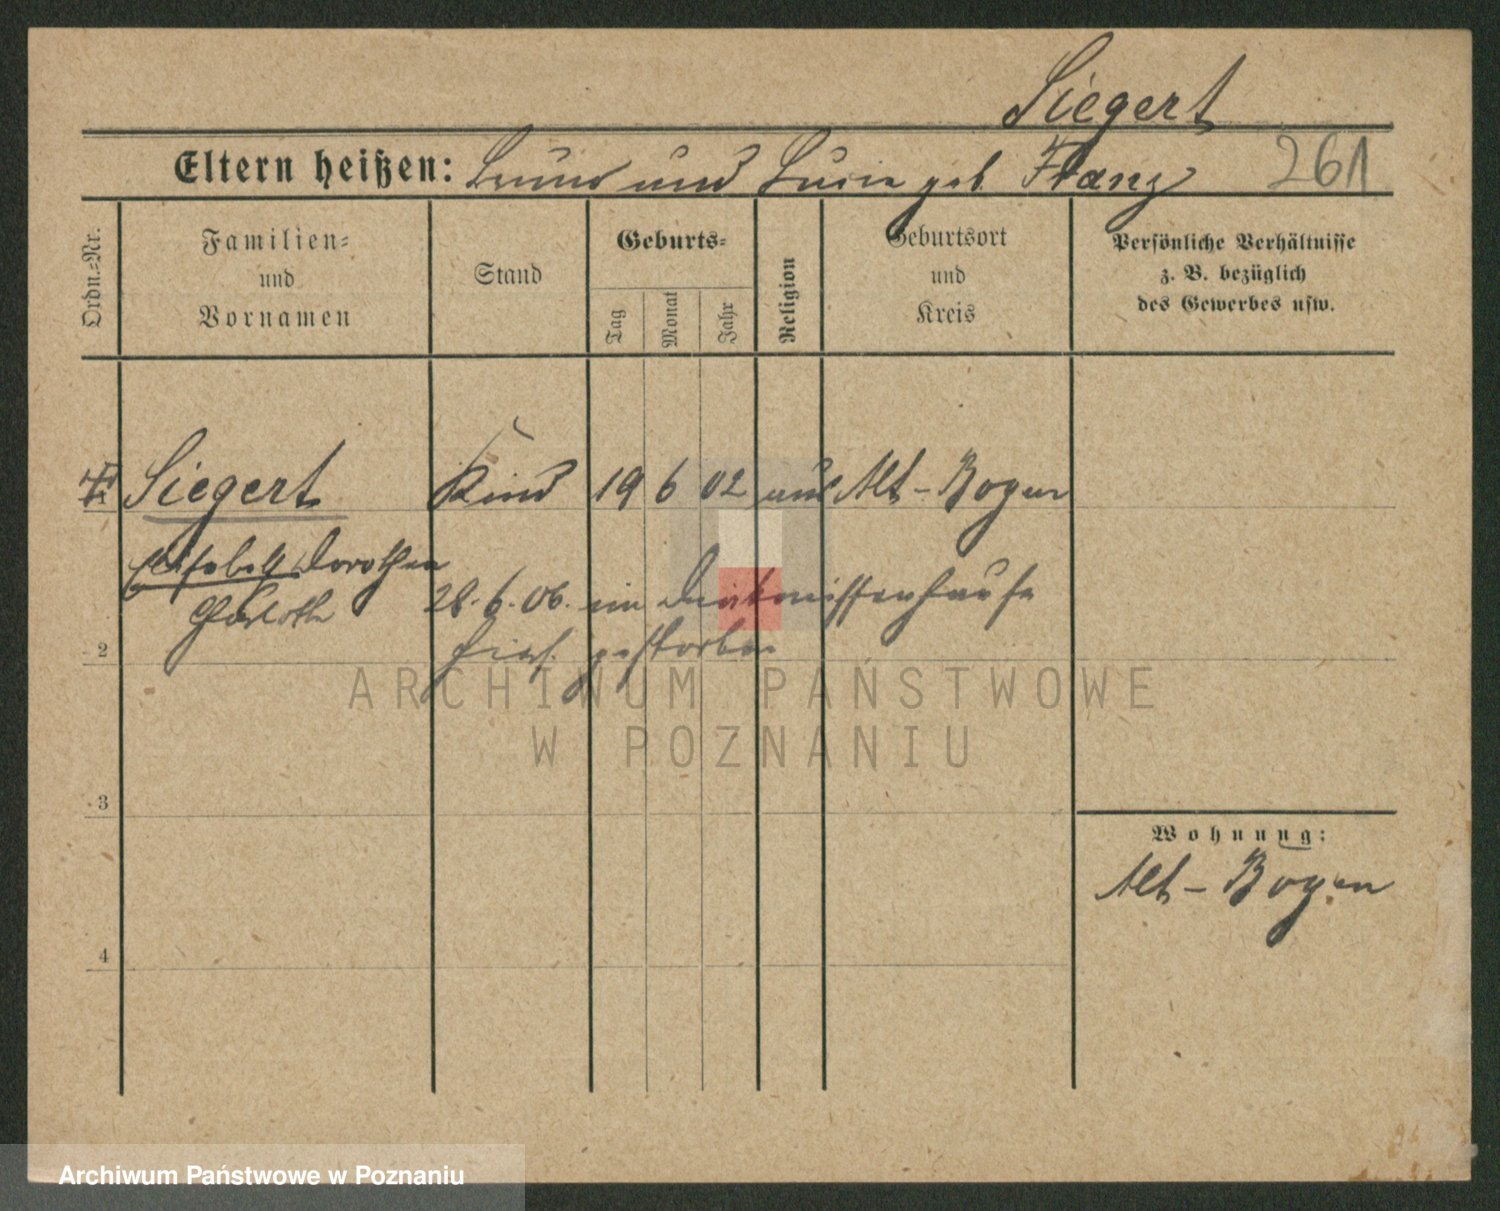 Siegert
Eltern heißen: Bruno und Lucie geb. Franz 261
Ordn.-Nr.
Familien-
und
Vornamen
Stand
Geburts-
Tag
Monat
Jahr
Religion
Geburtsort
und
Kreis
Persönliche Verhältnisse
z. B. bezüglich
des Gewerbes usw.
Siegert Kind 19 6 02 aus Alt-Bogen
Elisabeth Dorothea
28. 6. 06. im Diakonissenhause
2 hies. gestorben
ARCHIWUM PAŃSTWOWE
W POZNANIU
3
Wohnung:
Alt-Bogen
4
Archiwum Państwowe w Poznaniu